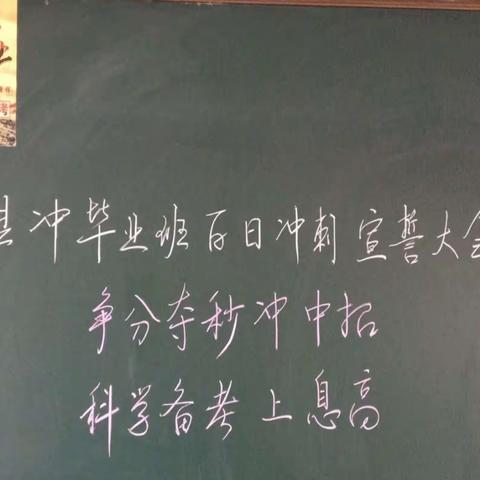 业
考
冲毕业班百日冲刺宣誓大会
争分夺秒冲中招
科学备考上息高